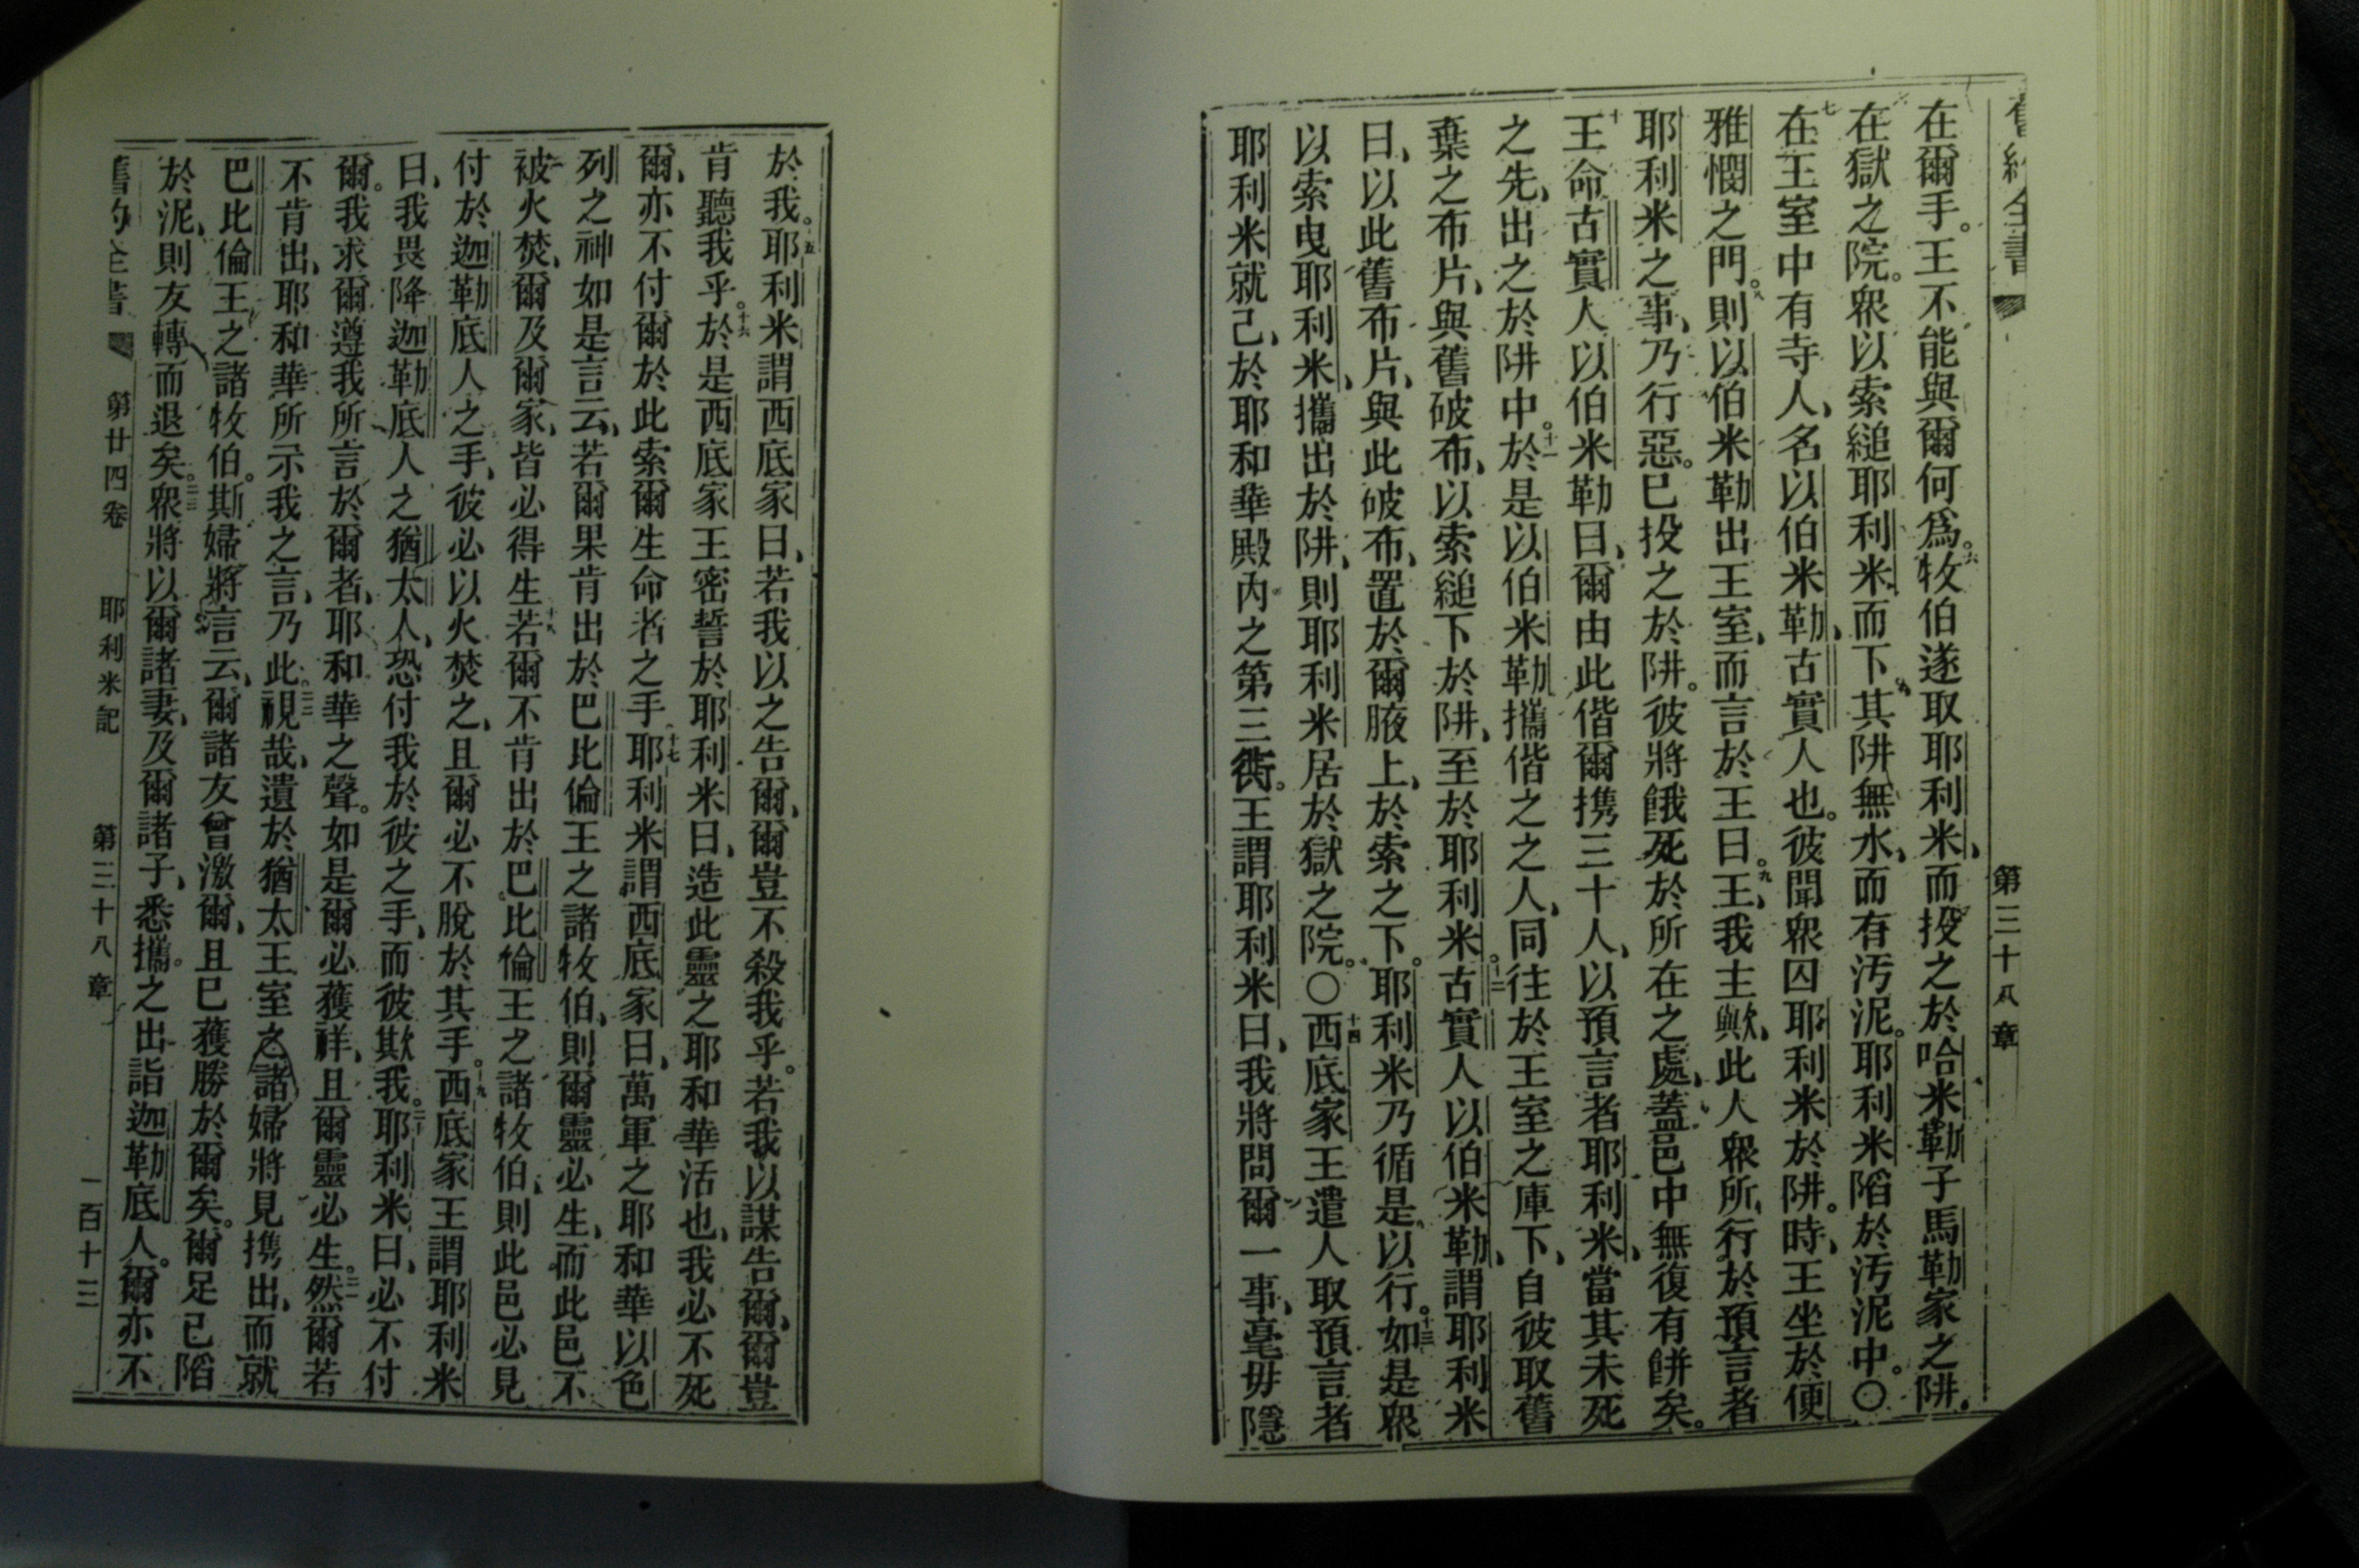 舊約全書 第三十八章
在爾手。王不能與爾何爲。六牧伯遂取耶利米、而投之於哈米勒子馬勒家之阱、
在獄之院。衆以索縋耶利米而下、其阱無水、而有汚泥。耶利米陷於汚泥中。〇
七在王室中有寺人、名以伯米勒、古實人也。彼聞衆囚耶利米於阱。時、王坐於便
雅憫之門。八則以伯米勒出王室、而言於王曰。九王、我主歟、此人衆所行於預言者
耶利米之事、乃行惡。已投之於阱。彼將餓死於所在之處、蓋邑中無復有餅矣。
十王命古實人以伯米勒曰、爾由此偕爾携三十人、以預言者耶利米、當其未死
之先、出之於阱中。十一於是以伯米勒攜偕之之人、同往於王室之庫下、自彼取舊
棄之布片、與舊破布、以索縋下於阱、至於耶利米。十二古實人以伯米勒、謂耶利米
曰、以此舊布片、與此破布、置於爾腋上、於索之下。耶利米乃循是以行。十三如是衆
以索曳耶利米、攜出於阱、則耶利米居於獄之院。〇十四西底家王遣人取預言者
耶利米就己、於耶和華殿內之第三衖。王謂耶利米曰、我將問爾一事、毫毋隱
於我。十五耶利米謂西底家曰、若我以之告爾、爾豈不殺我乎。若我以謀告爾、爾豈
肯聽我乎。十六於是西底家王密誓於耶利米曰、造此靈之耶和華活也、我必不死
爾、亦不付爾於此索爾生命者之手。十七耶利米謂西底家曰、萬軍之耶和華以色
列之神如是言云、若爾果肯出於巴比倫王之諸牧伯、則爾靈必生、而此邑不
被火焚、爾及爾家、皆必得生。十八若爾不肯出於巴比倫王之諸牧伯、則此邑必見
付於迦勒底人之手、彼必以火焚之、且爾必不脫於其手。十九西底家王謂耶利米
曰、我畏降迦勒底人之猶太人、恐付我於彼之手、而彼欺我。二十耶利米曰、必不付
爾。我求爾遵我所言於爾者、耶和華之聲。如是爾必獲祥、且爾靈必生。二一然爾若
不肯出、耶和華所示我之言、乃此。二二視哉、遺於猶太王室之諸婦將見携出、而就
巴比倫王之諸牧伯。斯婦將言云、爾諸友曾激爾、且已獲勝於爾矣。爾足已陷
於泥、則友轉而退矣。二三衆將以爾諸妻、及爾諸子、悉攜之出詣迦勒底人。爾亦不
舊約全書 第廿四卷 耶利米記 第三十八章 一百十三